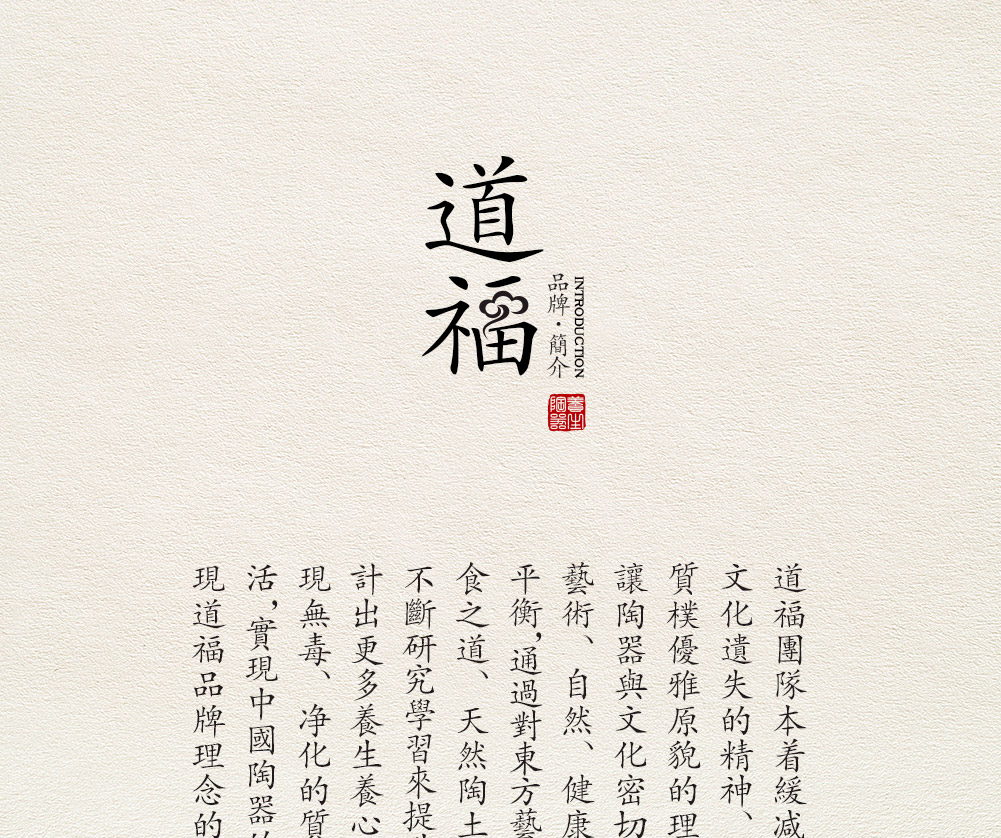 道福
品牌·簡介
INTRODUCTION
養生
陶器
道福團隊本着緩減
文化遺失的精神、
質樸優雅原貌的理
讓陶器與文化密切
藝術、自然、健康
平衡，通過對東方藝
食之道、天然陶土
不斷研究學習來提
計出更多養生養心
現無毒、净化的質
活，實現中國陶器
現道福品牌理念的